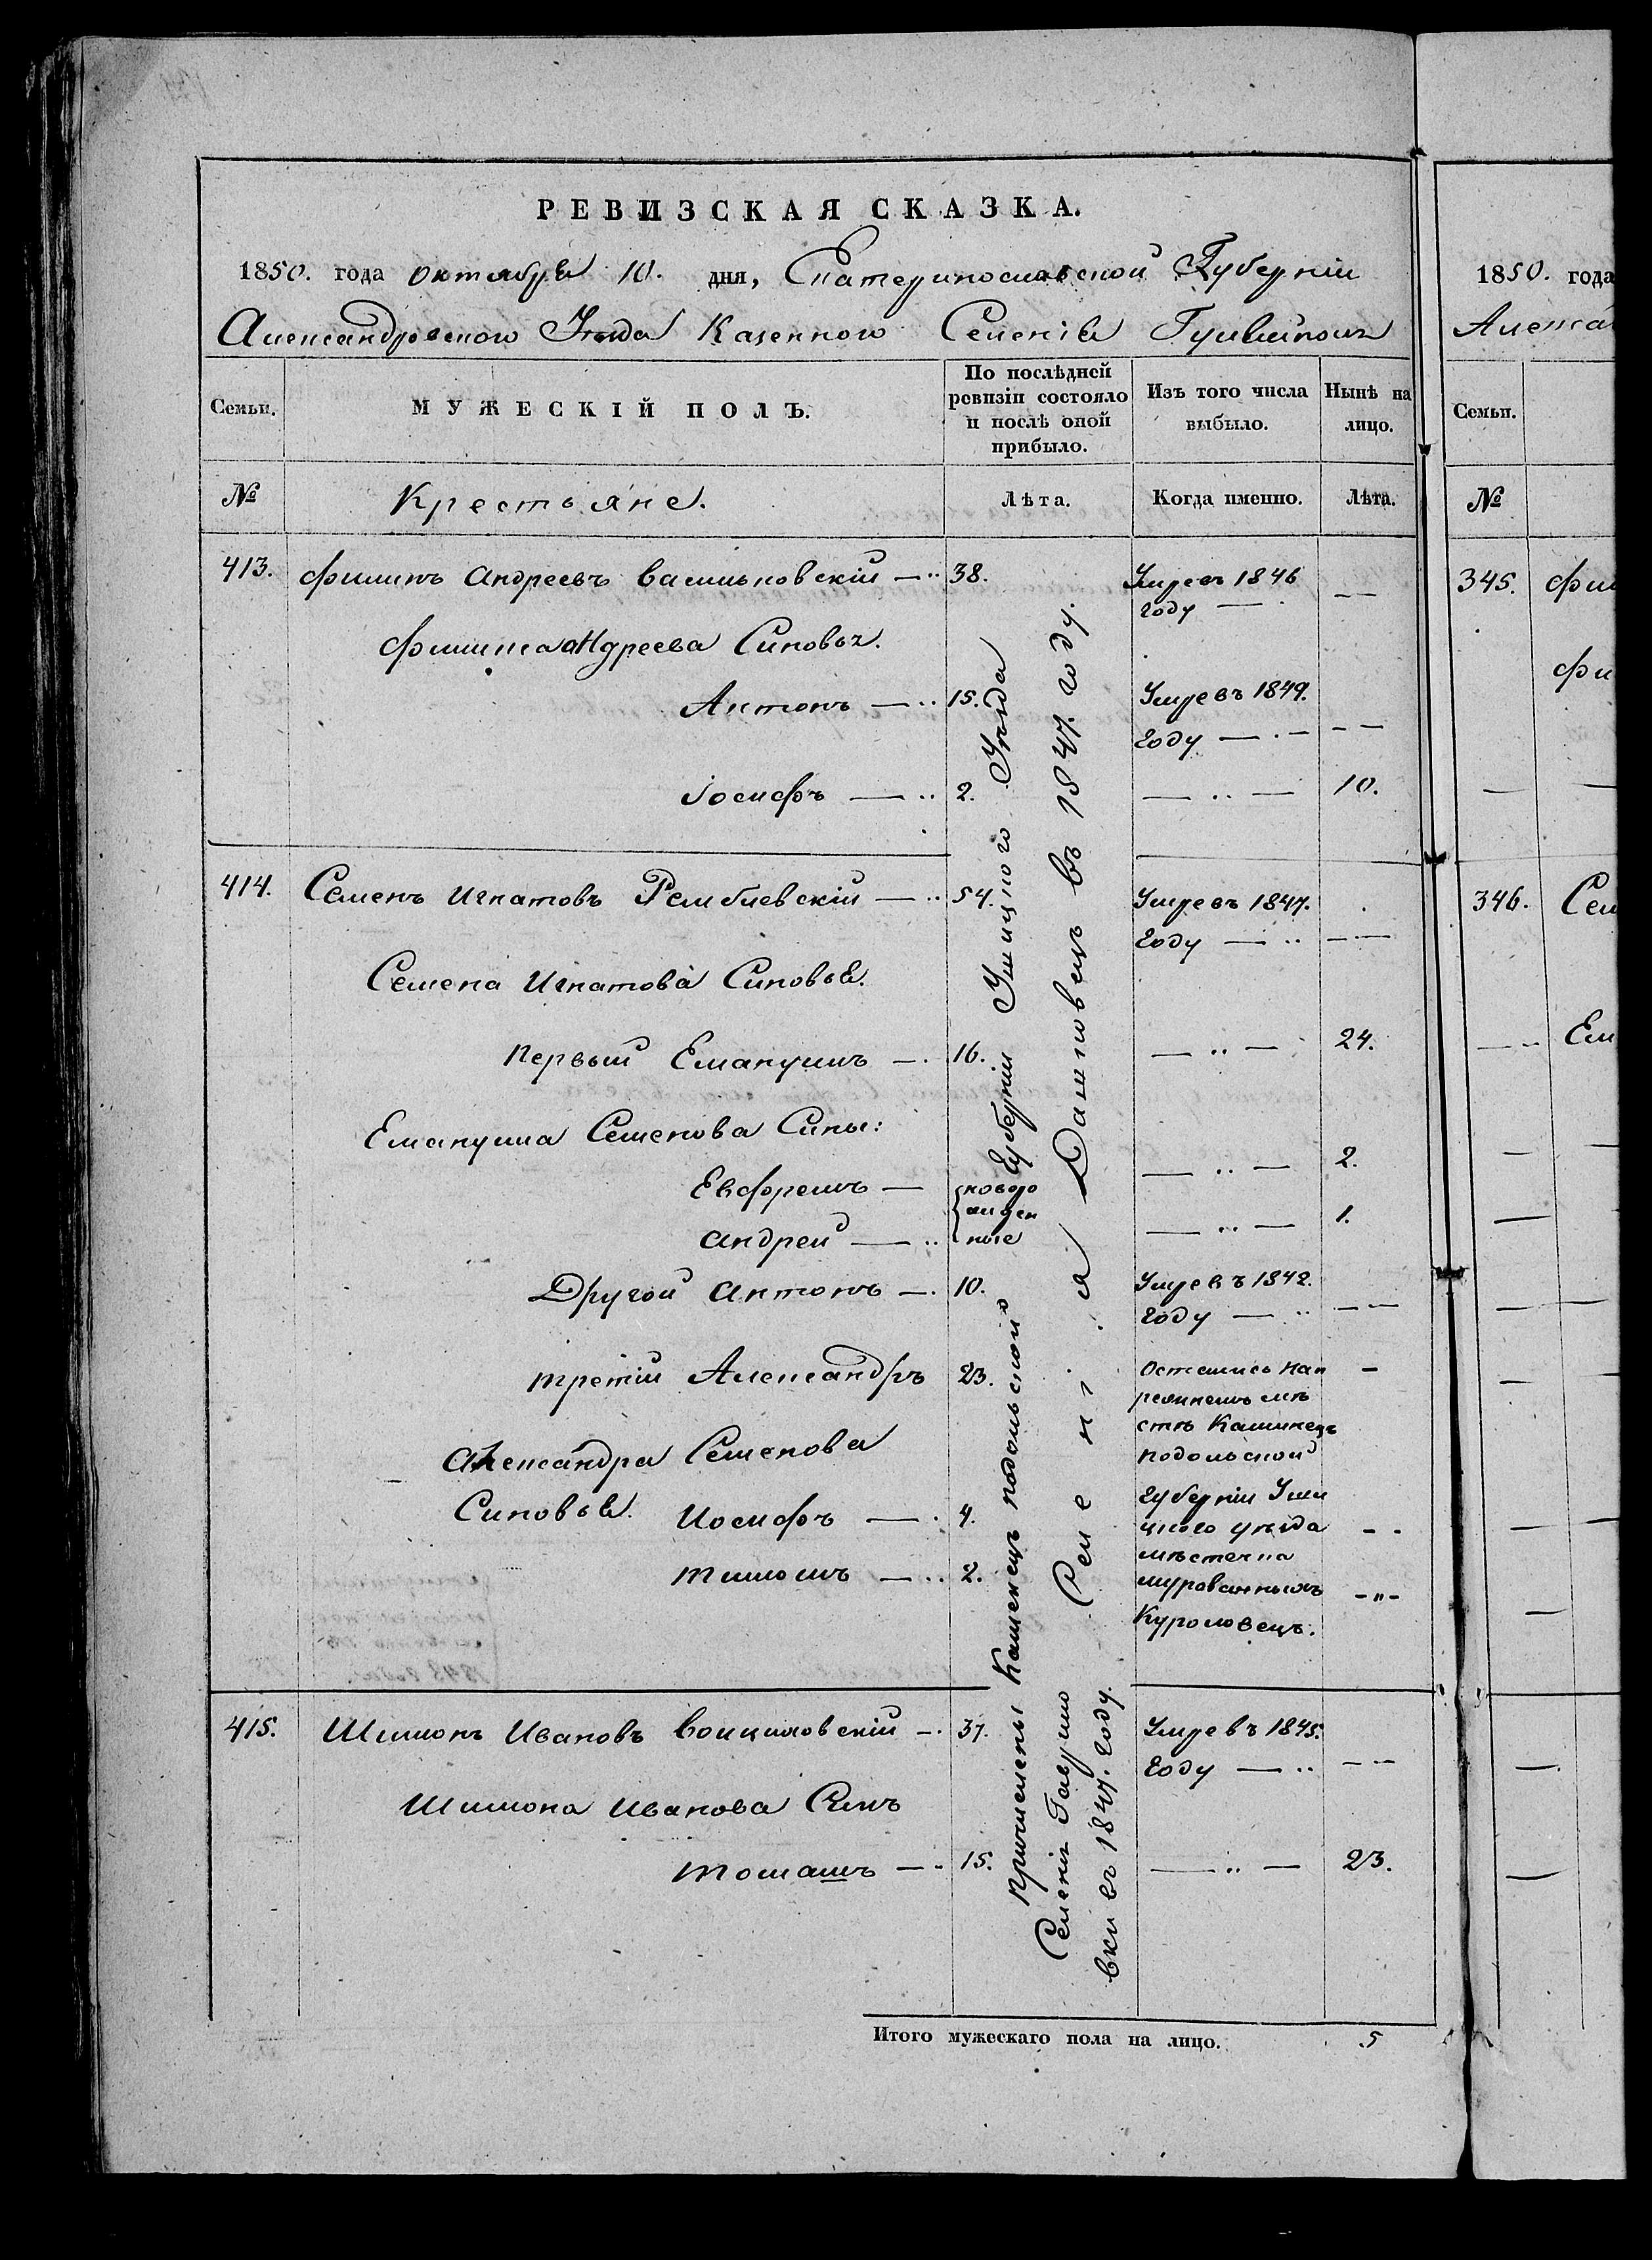 РЕВИЗСКАЯ СКАЗКА.
1850. года октября 10. дня, Екатеринославской Губерніи
Александровского Уезда Казенного Селенія Гуляйполя
Семьи.
МУЖЕСКІЙ ПОЛЪ.
По послѣдней
ревизіи состояло
и послѣ оной
прибыло.
Изъ того числа
выбыло.
Нынѣ на
лицо.
№
Крестьяне.
Лѣта.
Когда именно.
Лѣта.
413. Филипъ Андреевъ Васильковскій — 38. Умре въ 1846
году — — —
Филипа Андреева Сыновья.
Антонъ — 15. Умре въ 1849.
году — — —
Іосифъ — 2. — — 10.
414. Семенъ Игнатовъ Ремблевскій — 54. Умре въ 1847.
году — — —
Семена Игнатова Сыновья.
Первый Емануилъ — 16. — — 24.
Емануила Семенова Сыны:
Евфремъ — новоро — — 2.
жден
Андрей — ные — — 1.
Другой Антонъ — 10. Умре въ 1842.
году — — —
третій Александръ 23. Остались на п
режнемъ мѣ
стѣ Каминецъ
подольской
Александра Семенова
Сыновья. Иосифъ — 4. Губерніи Уши
цкого уѣзда
мѣстечка
Тимошъ — 2. мурованныхъ
Куроловецъ.
415. Шимонъ Ивановъ Войциховскій — 37. Умре въ 1845.
году — — —
Шимона Иванова Сынъ
Томашъ — 15. — — 23.
Причислены Каменецъ подольской Губерніи Ушицкого Уѣзда
Селенія Дашковецъ въ 1847. году.
Селенія Гаврило
вки въ 1847. году.
Итого мужескаго пола на лицо. 5
1850. года
Алекса
Семьи.
№
345. Фи
Фи
346. Сем
Ем